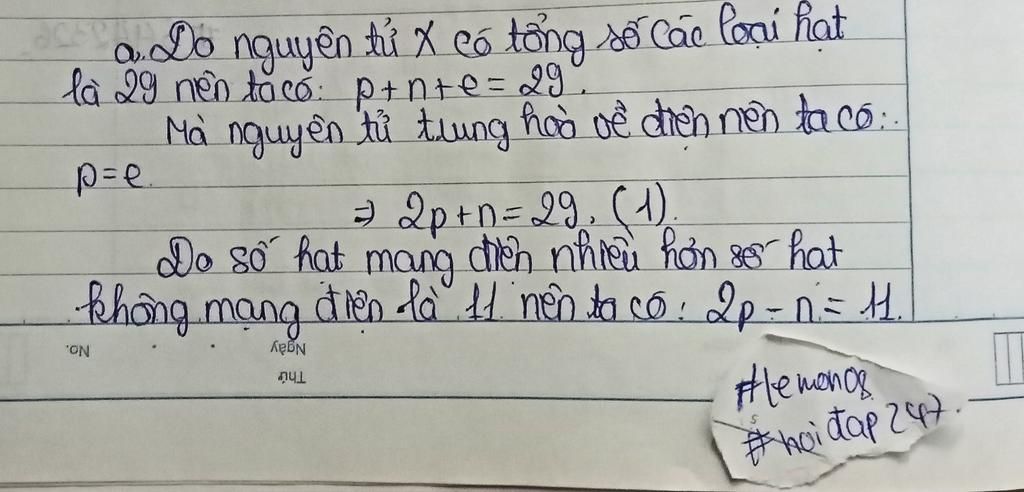 a. Do nguyên tử X có tổng số các loại hạt
là 29 nên ta có: p+n+e = 29.
Mà nguyên tử trung hoà về điện nên ta có:
p=e.
⇒ 2p+n=29. (1).
Do số hạt mang điện nhiều hơn số hạt
không mạng điện là 11 nên ta có: 2p-n=11.
No.
Ngày
Thứ
#lemon08
#hoidap247.